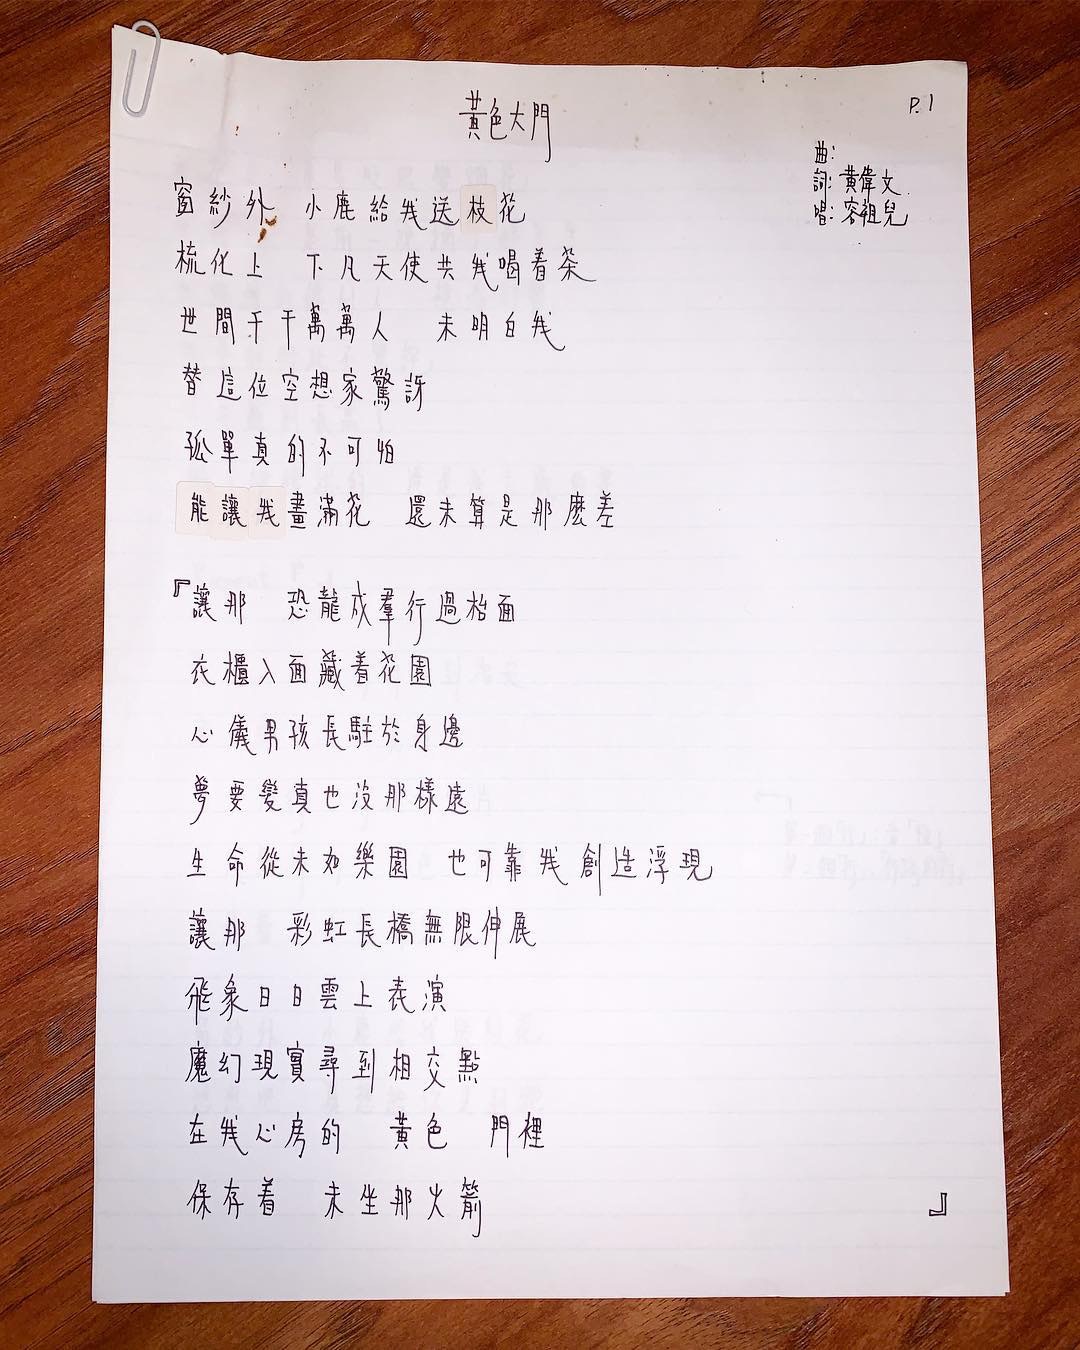 黃色大門
P.1
曲:
詞: 黃偉文
唱: 容祖兒
窗紗外 小鹿給我送枝花
梳化上 下凡天使共我喝着茶
世間千千萬萬人 未明白我
替這位空想家驚訝
孤單真的不可怕
能讓我畫滿花 還未算是那麼差
『讓那 恐龍成羣行過枱面
衣櫃入面藏着花園
心儀男孩長駐於身邊
夢要變真也沒那樣遠
生命從未如樂園 也可靠我創造浮現
讓那 彩虹長橋無限伸展
飛象日日雲上表演
魔幻現實尋到相交點
在我心房的 黃色 門裡
保存着 未坐那火箭 』